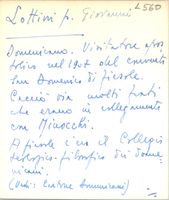 L560
Lottini p. Giovanni
Domenicano. Visitatore apos
tolico nel 1907 del convento
San Domenico di Fiesole.
Cacciò via molti frati
che erano in collegamento
con Minocchi.
A Fiesole c'era il Collegio
teologico-filosofico dei dome
nicani.
(Vedi: Centone Domenicani)